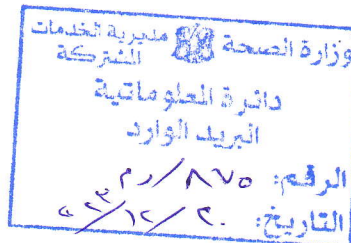 وزارة الصحة مديرية الخدمات المشتركة
دائرة المعلوماتية
البريد الوارد
الرقم: ٨٧٥/رم
التاريخ: ٢٠/١٢/٢٣